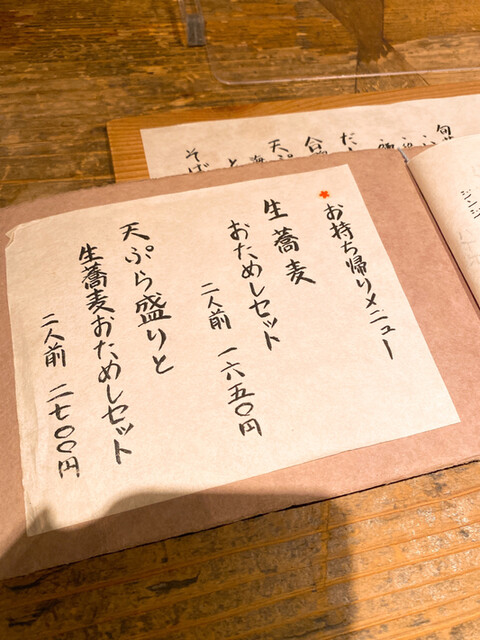 お持ち帰りメニュー
生蕎麦
おためしセット
二人前 一六五〇円
天ぷら盛りと
生蕎麦おためしセット
二人前 二七〇〇円
そば